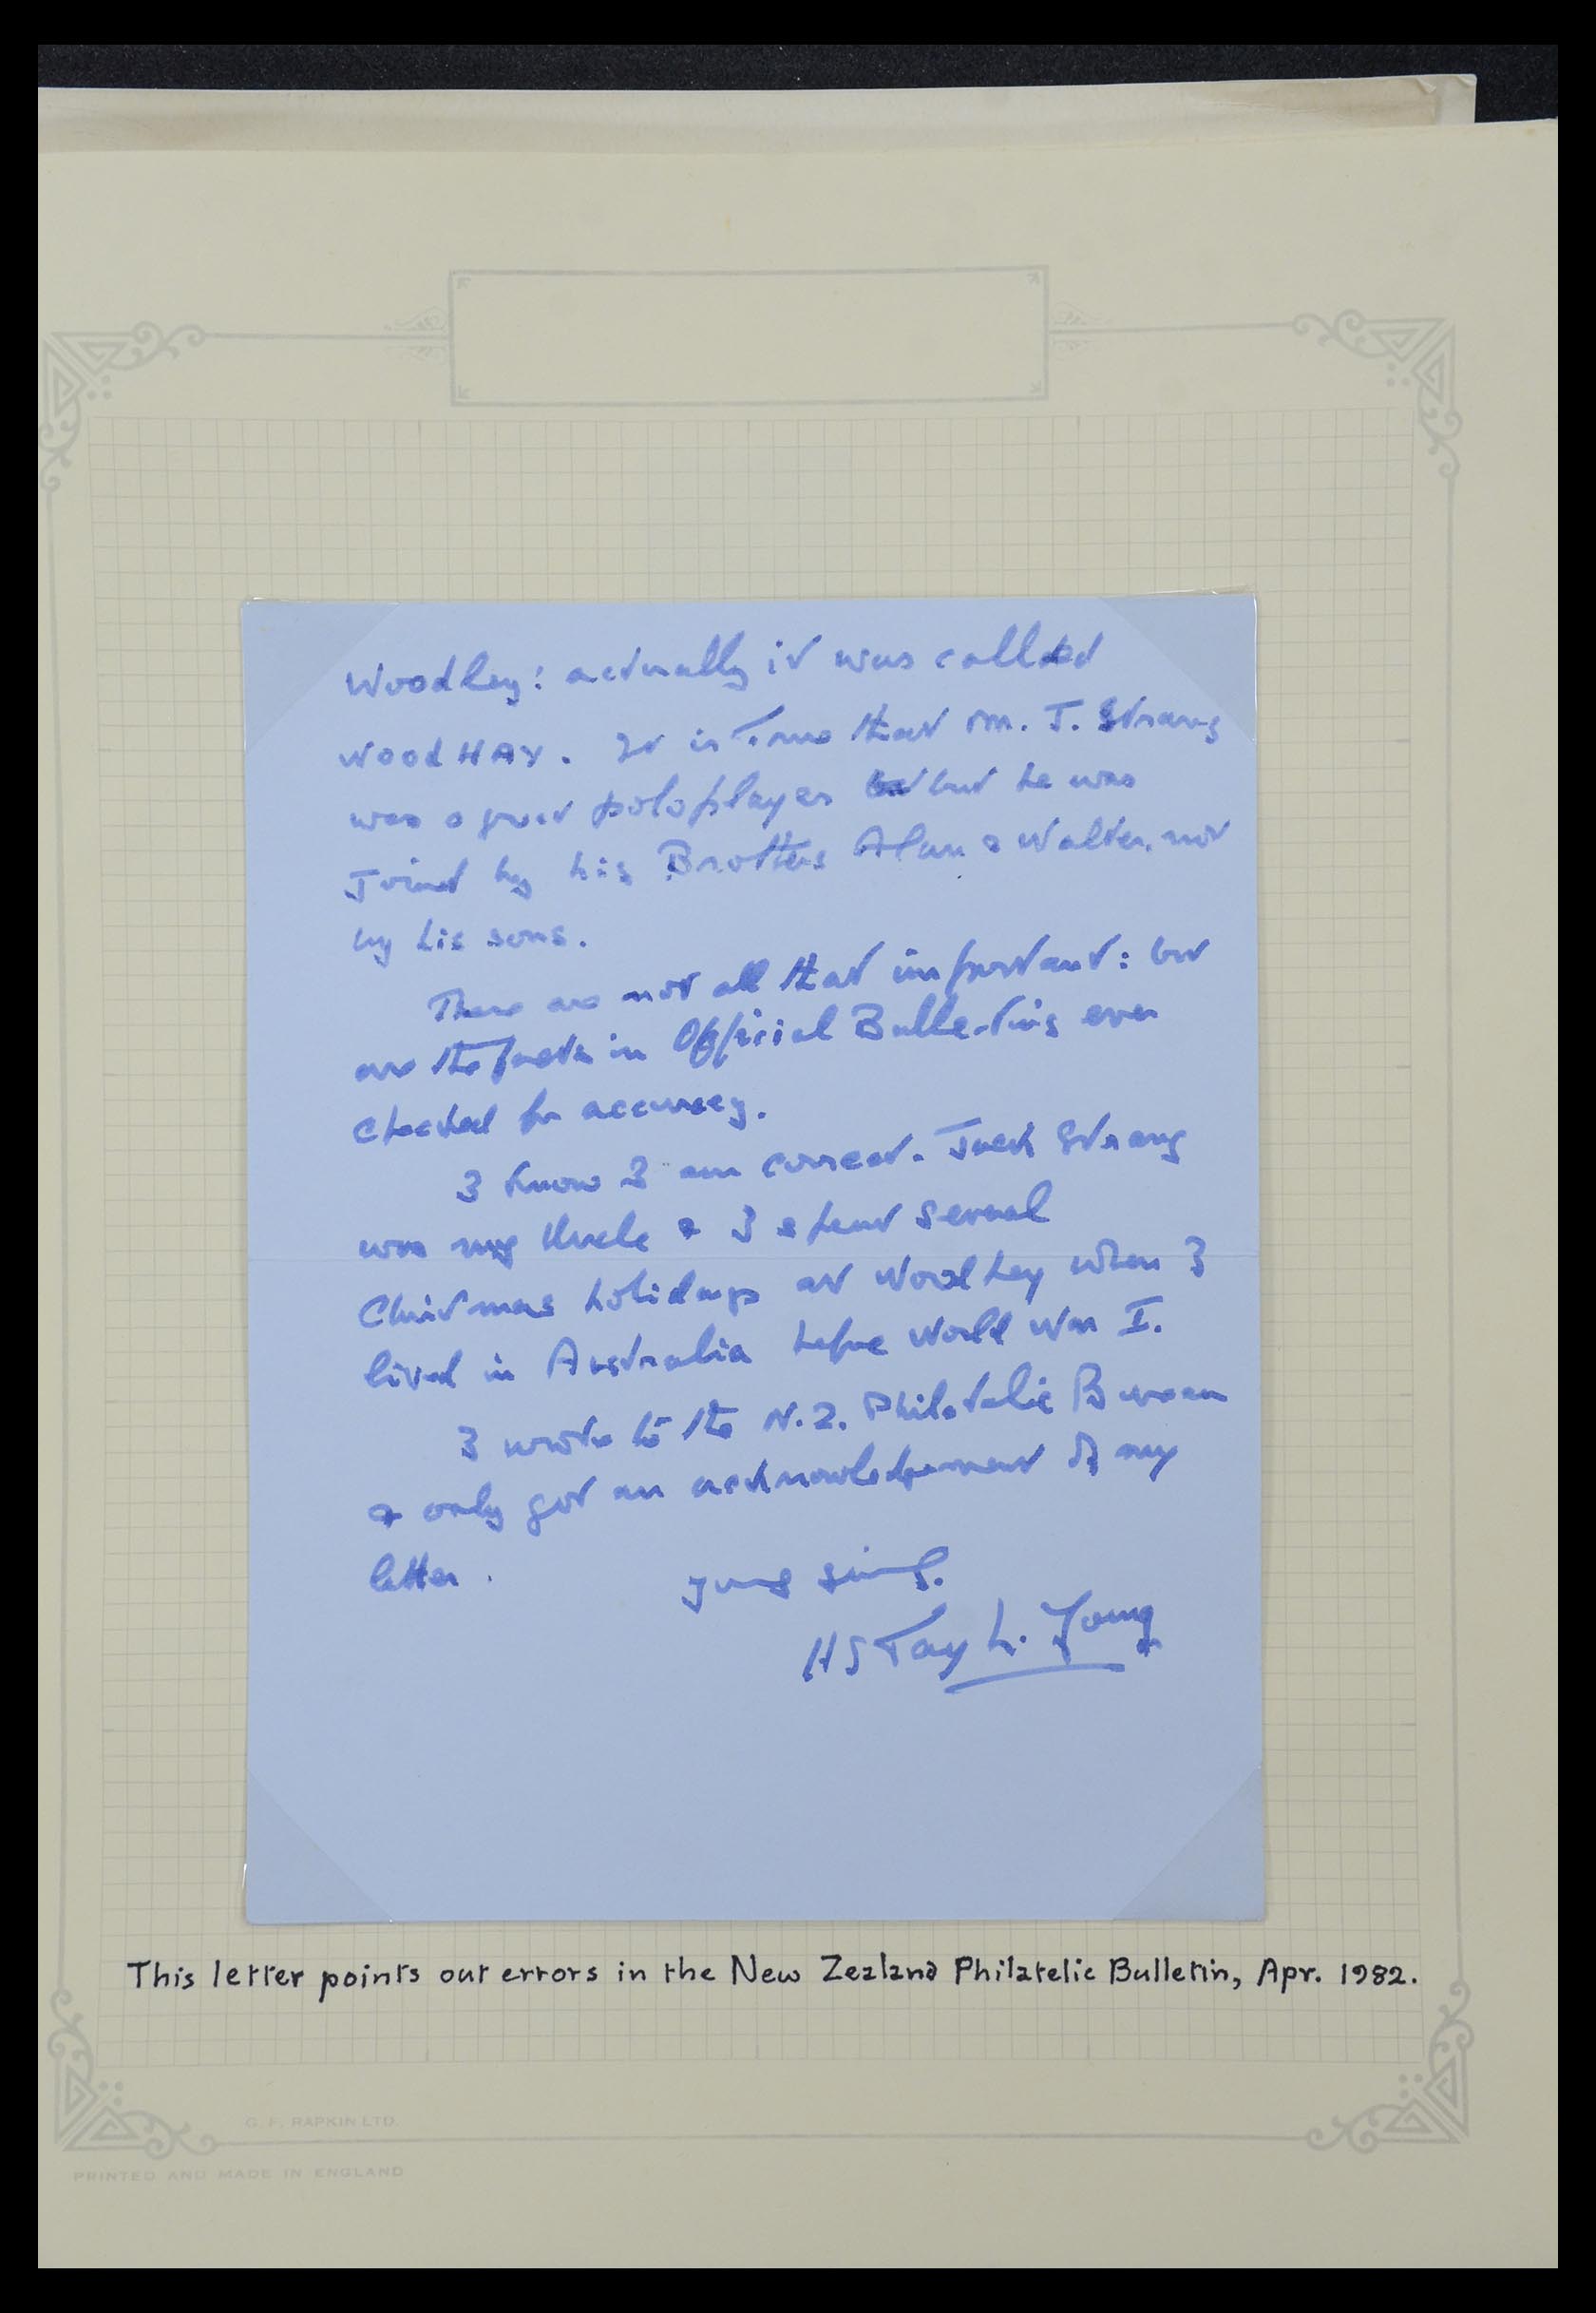 Woodley: actually it was called
Wood HAY. It is True that Mr. J. Strang
was a great polo player but he was
Joined by his Brothers Alan & Walter, not
by his sons.
These are not all that important: but
are the facts in Official Bulletins ever
checked for accuracy.
I know I am correct. Jack Strang
was my Uncle & I spent several
Christmas holidays at Woodhay when I
lived in Australia before World War I.
I wrote to the N.Z. Philatelic Bureau
& only got an acknowledgement of my
letter.
yours sincerely.
H S Tay L. Young
This letter points out errors in the New Zealand Philatelic Bulletin, Apr. 1982.
G. F. RAPKIN LTD.
PRINTED AND MADE IN ENGLAND